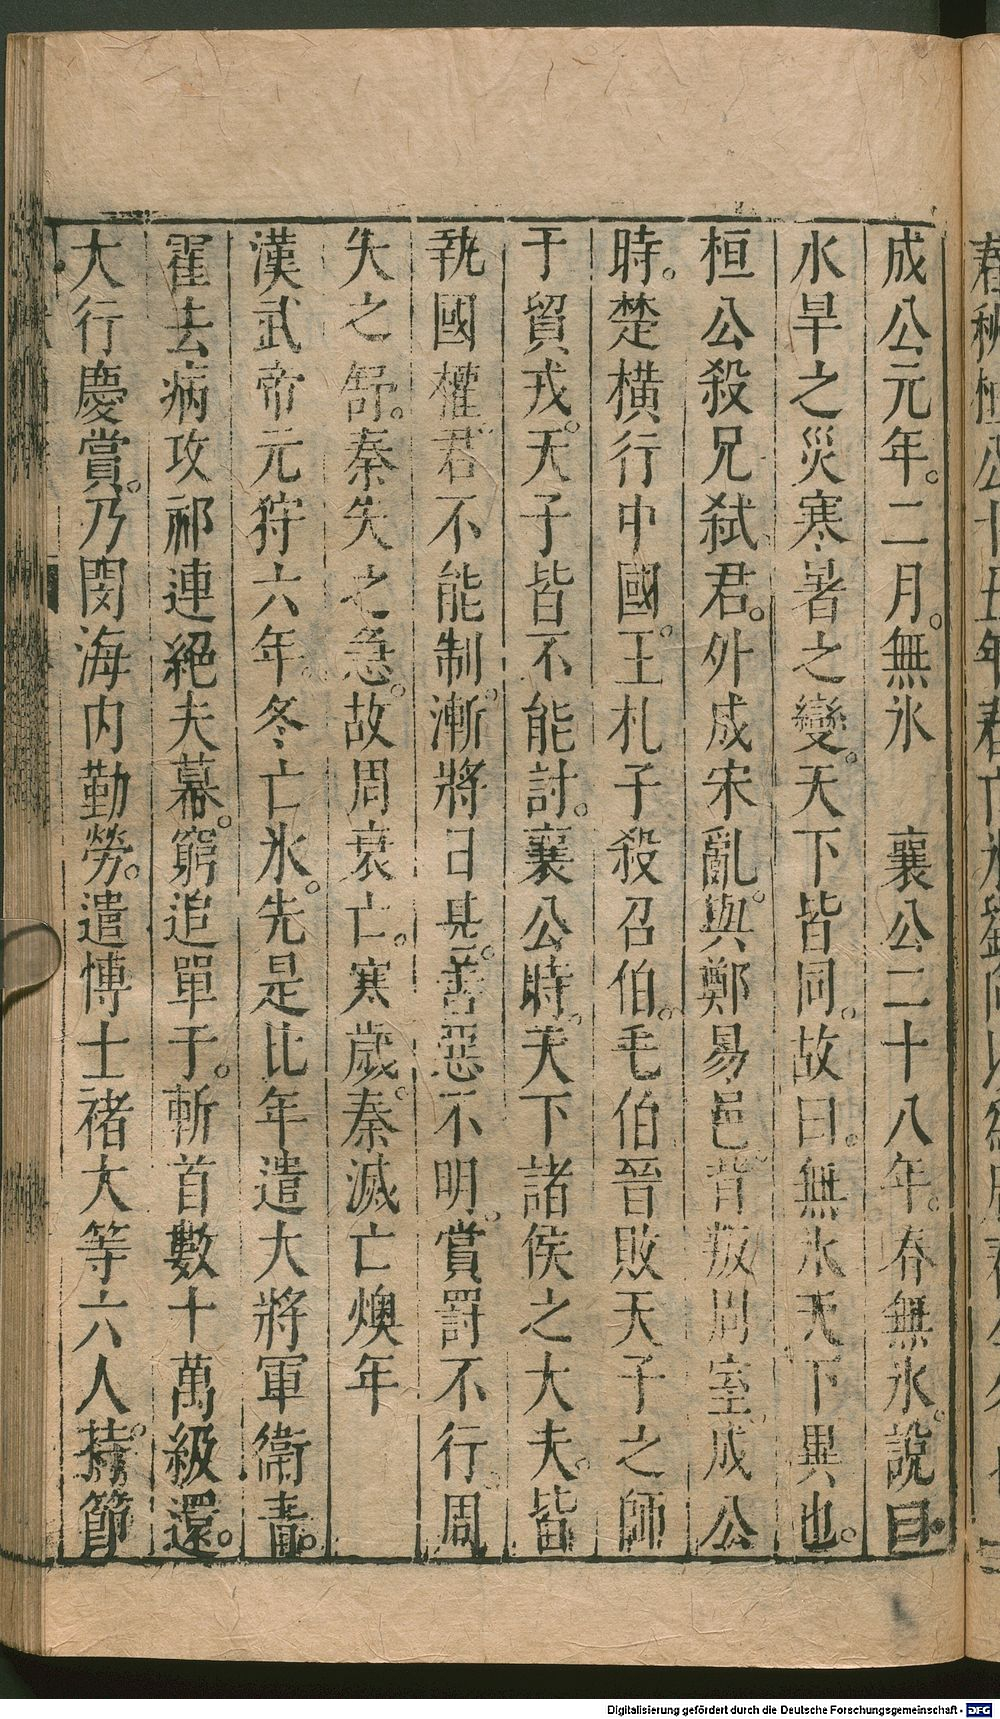 成公元年。二月。無氷　襄公二十八年。春無氷。說曰
水旱之災寒暑之變。天下皆同。故曰。無氷天下異也。
桓公殺兄弒君。外成宋亂。與鄭易邑。背叛周室。成公
時。楚橫行中國。王札子殺召伯。毛伯晉敗天子之師
于貿戎。天子皆不能討。襄公時。天下諸侯之大夫。皆
執國權。君不能制。漸將日甚。善惡不明。賞罰不行。周
失之舒。秦失之急。故周衰亡。寒歲。秦滅亡燠年
漢武帝元狩六年。冬亡氷。先是比年遣大將軍衛青。
霍去病攻祁連絕夫幕。窮追單于。斬首數十萬級還。
大行慶賞。乃閔海内勤勞。遣博士褚大等六人。持節
春秋桓公十五年春亡氷劉向以爲
Digitalisierung gefördert durch die Deutsche Forschungsgemeinschaft - DFG